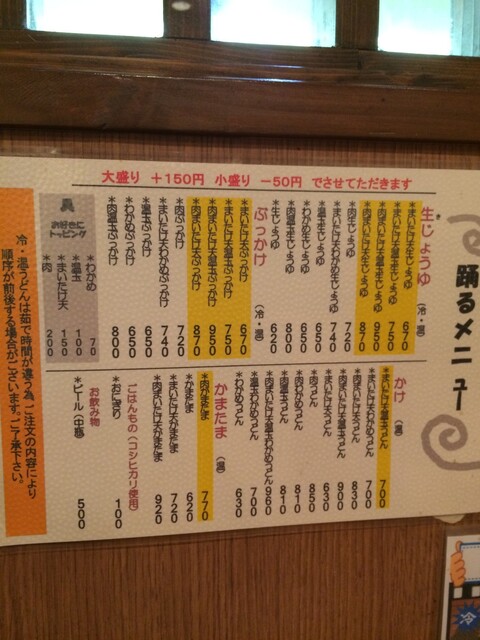 踊るメニュー
大盛り ＋150円 小盛り －50円 でさせてただきます
生じょうゆ (冷・温)
*まいたけ天生じょうゆ 670
*まいたけ天温玉生じょうゆ 750
*肉まいたけ天温玉生じょうゆ 950
*肉まいたけ天生じょうゆ 870
*肉生じょうゆ 720
*まいたけ天わかめ生じょうゆ 740
*温玉生じょうゆ 650
*わかめ生じょうゆ 650
*肉温玉生じょうゆ 800
*生じょうゆ 620
ぶっかけ (冷・温)
*まいたけ天ぶっかけ 670
*まいたけ天温玉ぶっかけ 750
*肉まいたけ天温玉ぶっかけ 950
*肉まいたけ天ぶっかけ 870
*肉ぶっかけ 720
*まいたけ天わかめぶっかけ 740
*温玉ぶっかけ 650
*わかめぶっかけ 650
*肉温玉ぶっかけ 800
具
お好きに
トッピング
*わかめ 70
*温玉 100
*まいたけ天 150
*肉 200
かけ (温)
*まいたけ天うどん 700
*まいたけ天わかめうどん 700
*まいたけ天温玉うどん 830
*肉まいたけ天うどん 900
*まいたけ天うどん 630
*肉うどん 850
*肉温玉うどん 810
*肉わかめうどん 810
*肉まいたけ天温玉わかめうどん 960
*温玉わかめうどん 700
*わかめうどん 630
かまたま (温)
*肉かまたま 770
*かまたま 620
*まいたけ天かまたま 720
*肉まいたけ天かまたま 920
ごはんもの (コシヒカリ使用)
*おにぎり 100
お飲み物
*ビール (中瓶) 500
冷・温うどんは茹で時間が違う為、ご注文の内容により
順序が前後する場合がございます。ご了承下さい。
冷